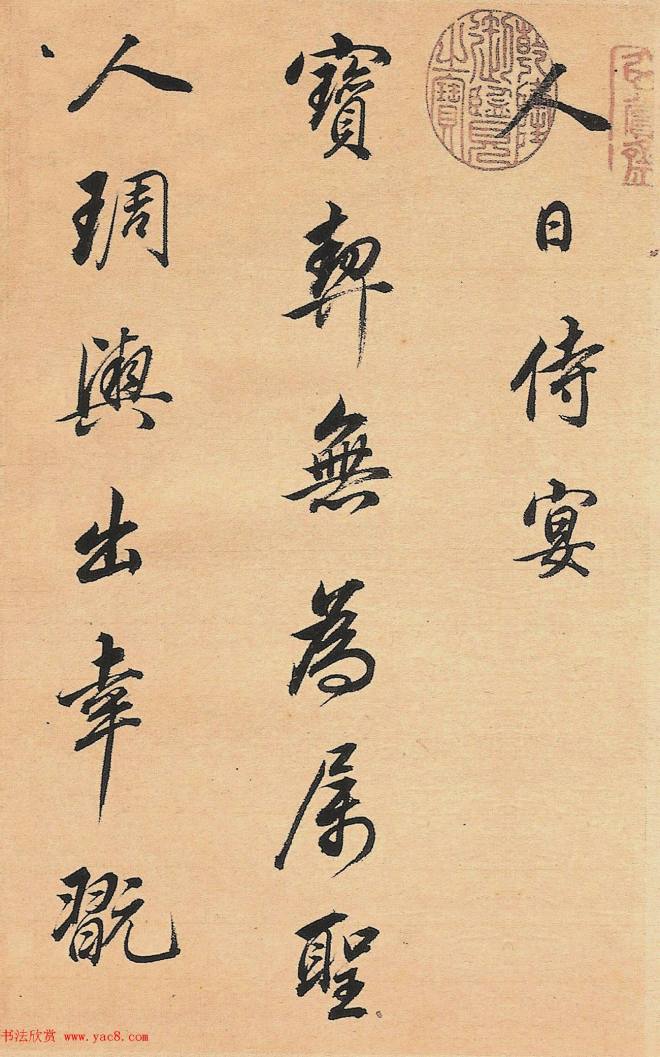 乾隆御覽之寶
人日侍宴
寶契無為属聖
人琱輿出幸翫
书法欣赏 www.yac8.com